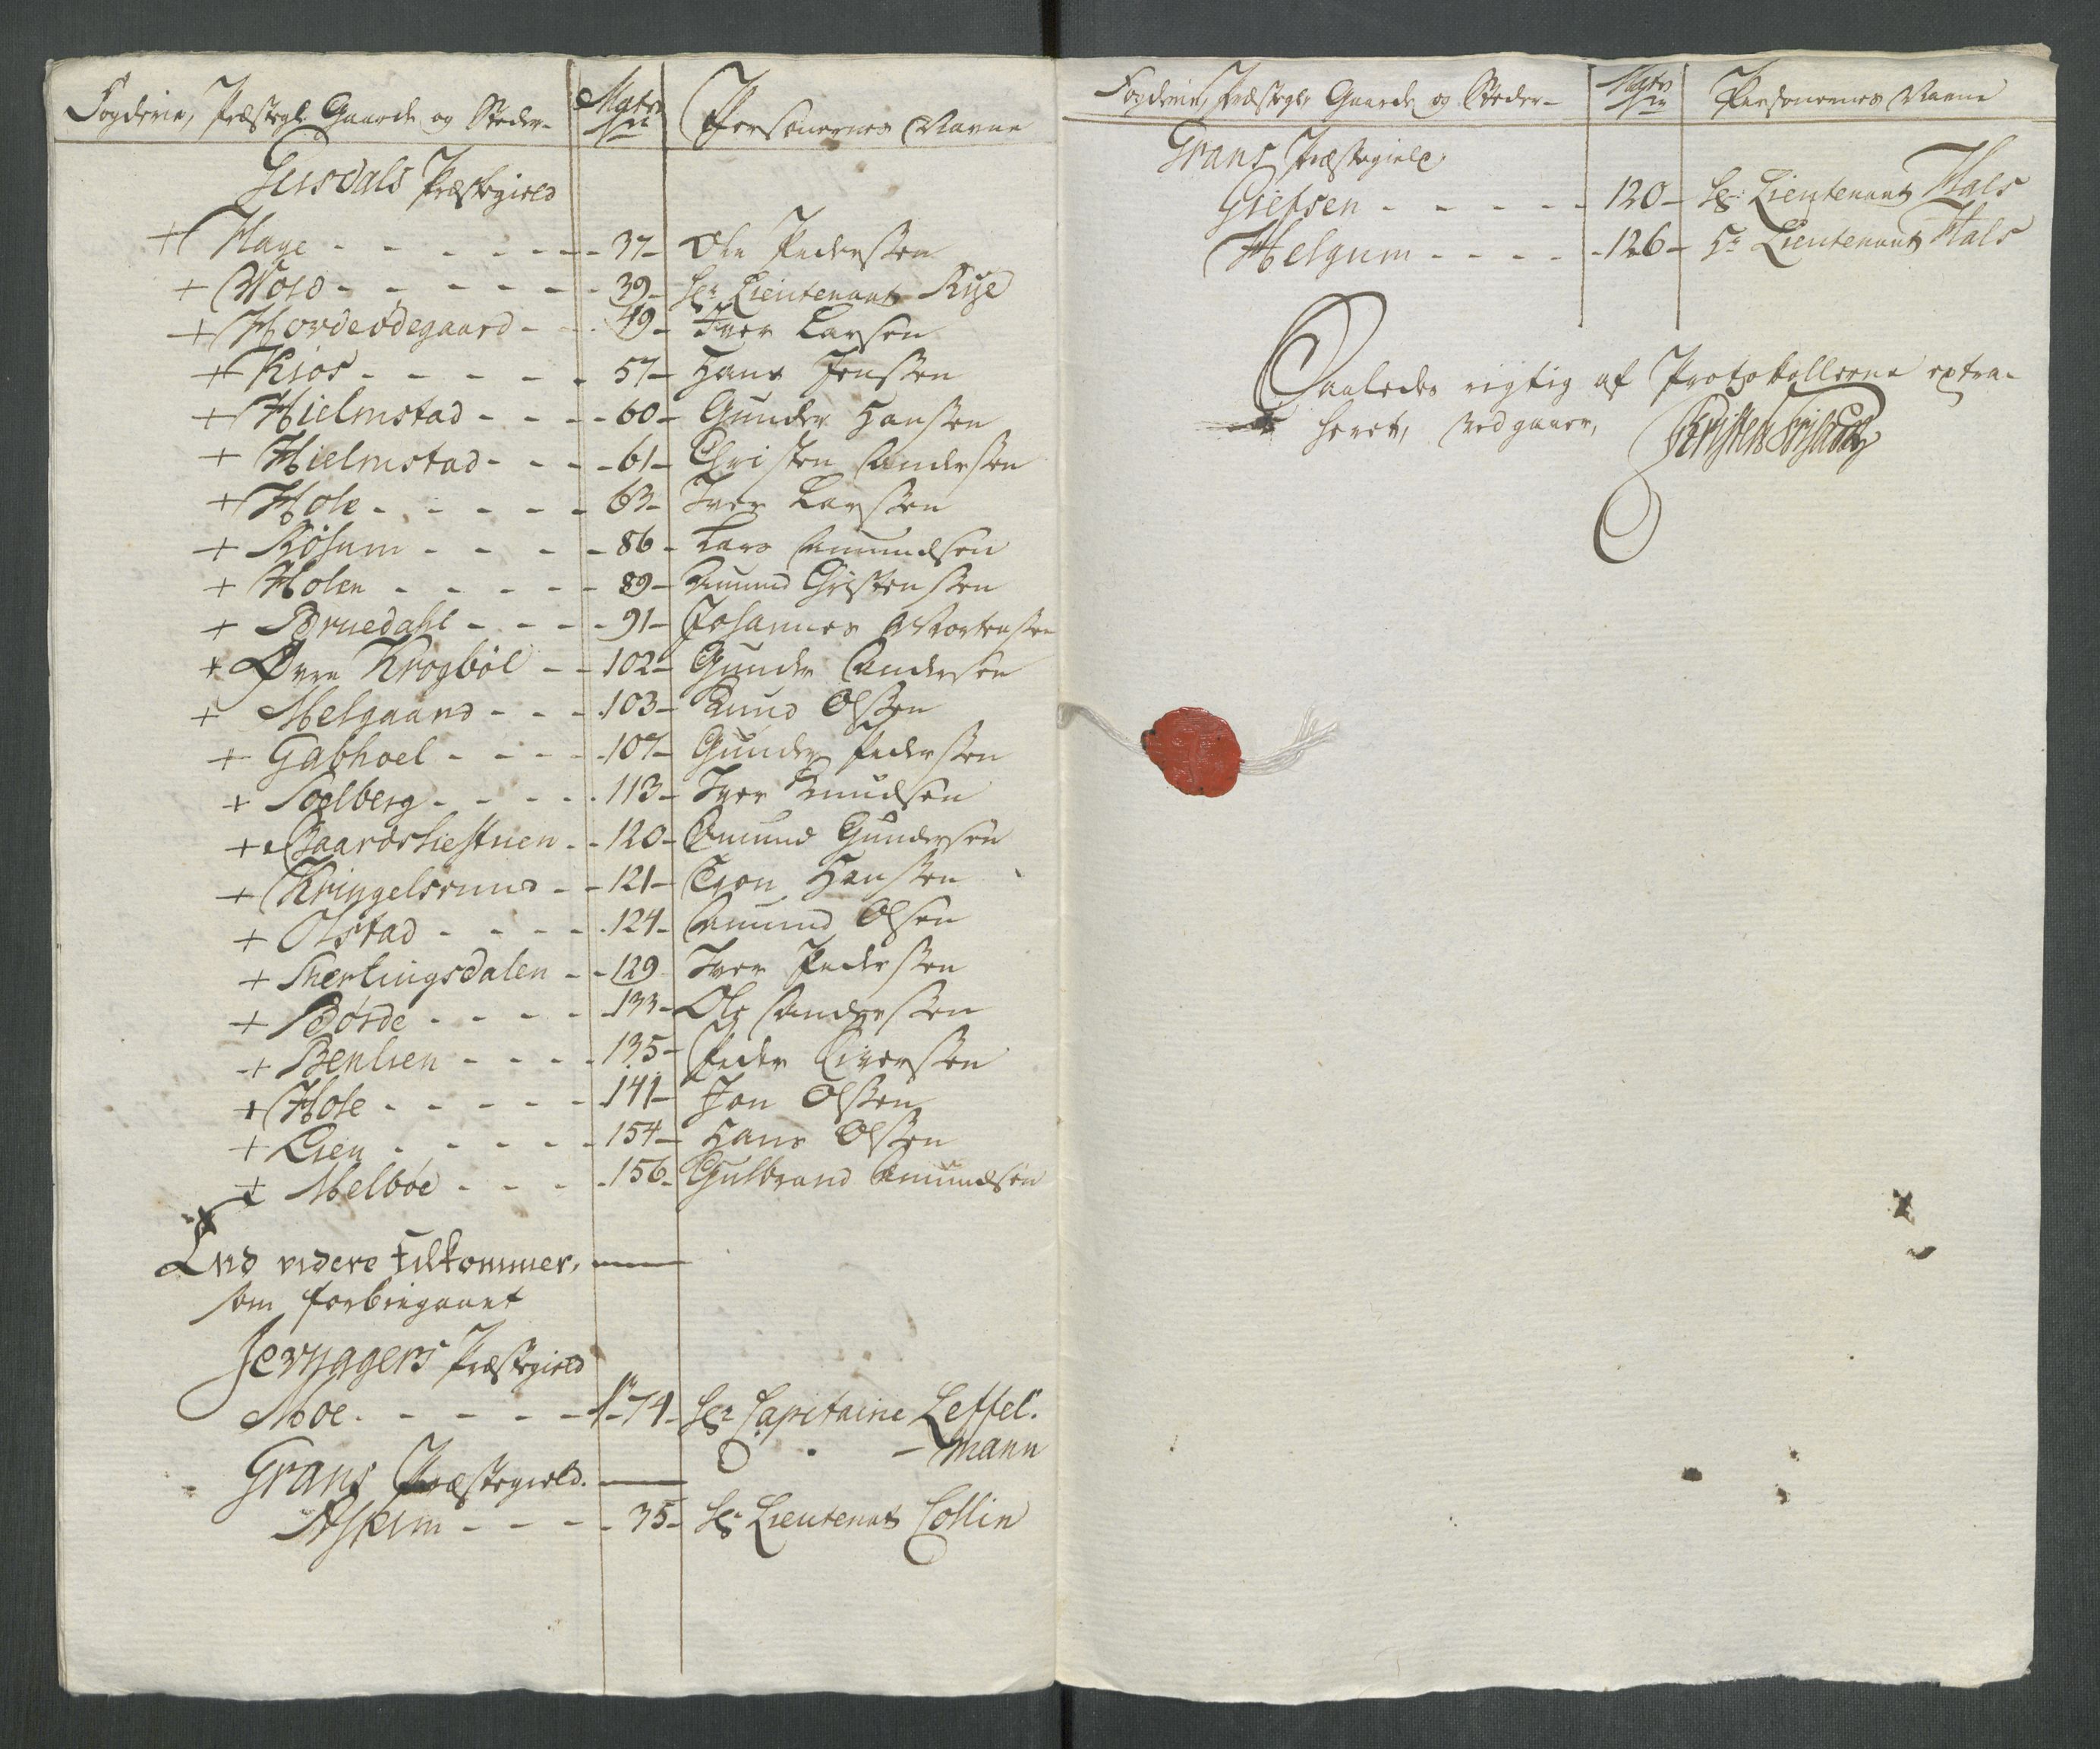 Fogderie, Præstegl. Gaarde og Steder.
Matr. No
Personernes Navne
Gusdals Præstegield
+ Hage - - - - - - 37 - Ole Pedersen
+ Wold - - - - - - 39 - Hr. Lieutenant Rye
+ Hovdeødegaard - - - 49 - Iver Larsen
+ Kios - - - - - 57 - Hans Jenssen
+ Hielmstad - - - - 60 - Gunder Hanssen
+ Hielmstad - - - - 61 - Christen Anderssen
+ Hole - - - - - 63 - Iver Larssen
+ Bøsum - - - - 86 - Lars Amundsen
+ Holen - - - - - 89 - Amund Christenssen
+ Bruedahl - - - - 91 - Johannes Mortenssen
+ Øvre Krogböl - - 102 - Gunder Andersen
+ Melgaard - - - 103 - Knud Olssen
+ Gabhoel - - - - 107 - Gunder Pederssen
+ Soelberg - - - - 113 - Iver Knudsen
+ Baardsliestuen - - 120 - Amund Gundersen
+ Kringelsrund - - 121 - Tron Hanssen
+ Olstad - - - - - 124 - Amund Olsen
+ Sherlingsdalen - - 129 Iver Pederssen
+ Bösde - - - - 133 - Ole Anderssen
+ Benlien - - - - 135 - Peder Siverssen
+ Hole - - - - - 141 - Jon Olssen
+ Lien - - - - - 154 - Hans Olssen
+ Melböe - - - - 156 - Gulbrand Amundsen
End videre tilkommer,
som forbiegaaet
Jevnagers Præstegield
Moe - - - - - No 74 - Hr. Capitaine Leffel-
mann
Grans Præstegield.
Askim - - - - 35 - Hr. Lieutenant Collin
Fogderie, Præstegl. Gaarde og Steder -
Matr. No
Personernes Navne
Grans Præstegield
Gielsen - - - - - 120 - Hr. Lieutenant Hals
Helgum - - - - 126 - Hr. Lieutenant Hals
Saaledes rigtig af Protokollerne extra-
heret, vedgaaer,